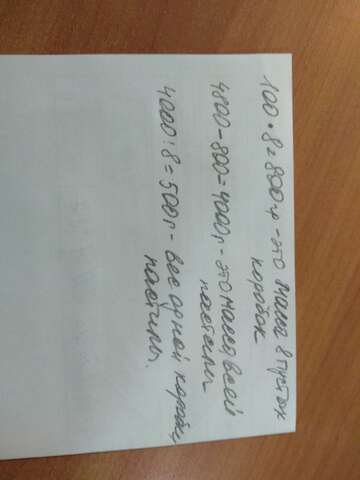 100 • 8 = 800г - это масса 8 пустых
коробок
4800-800=4000г - это масса всей
пастилы
4000:8=500г - вес одной коробки
пастилы.